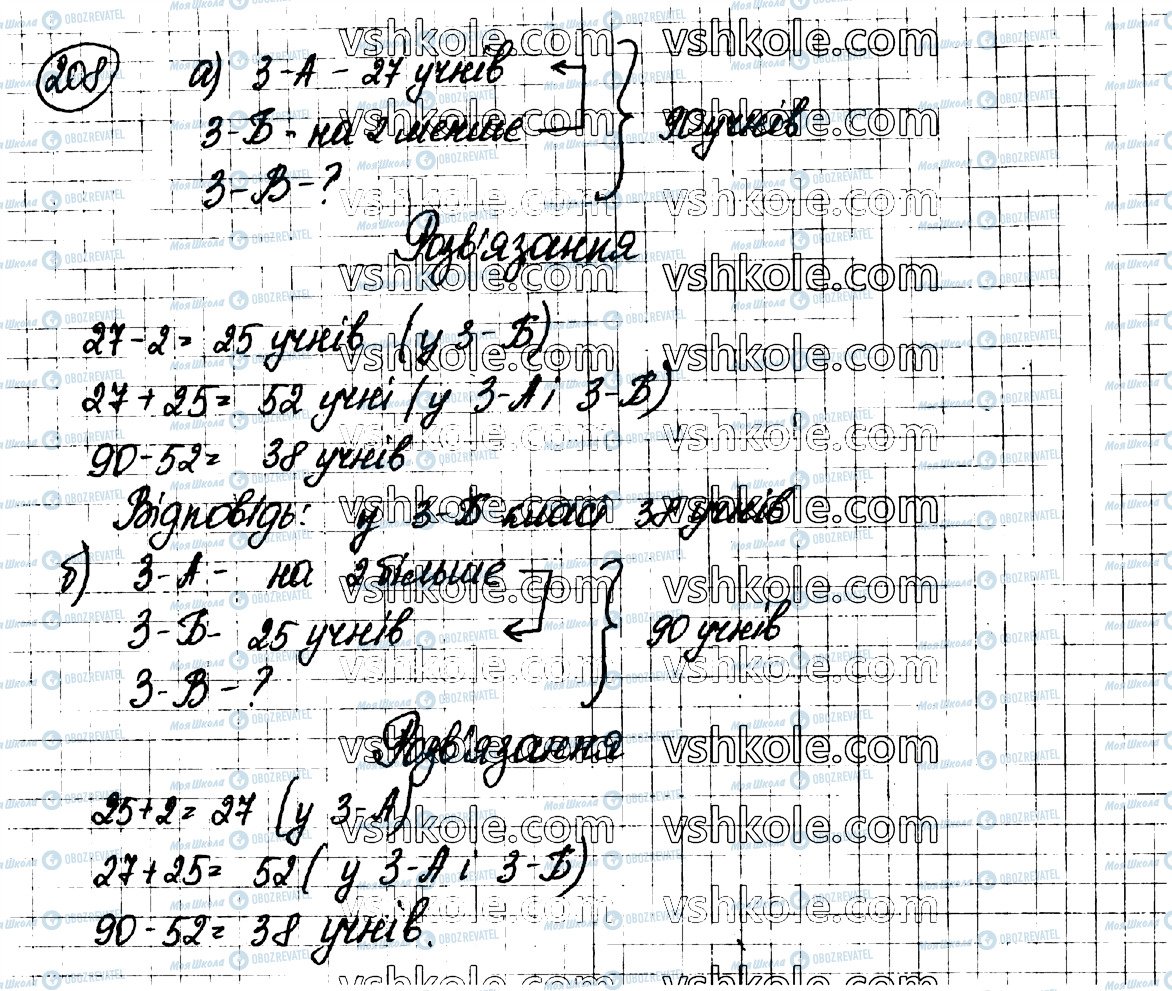 208 а) 3-А - 27 учнів
3-Б - на 2 менше
90 учнів
3-В - ?
Розв'язання
27-2= 25 учнів (у 3-Б)
27+25= 52 учні (у 3-А і 3-Б)
90-52= 38 учнів
Відповідь: у 3-Б класі 38 учнів
б) 3-А - на 2 більше
3-Б - 25 учнів
90 учнів
3-В - ?
Розв'язання
25+2= 27 (у 3-А)
27+25= 52 (у 3-А і 3-Б)
90-52= 38 учнів.
vshkole.com
МояШкола OBOZREVATEL